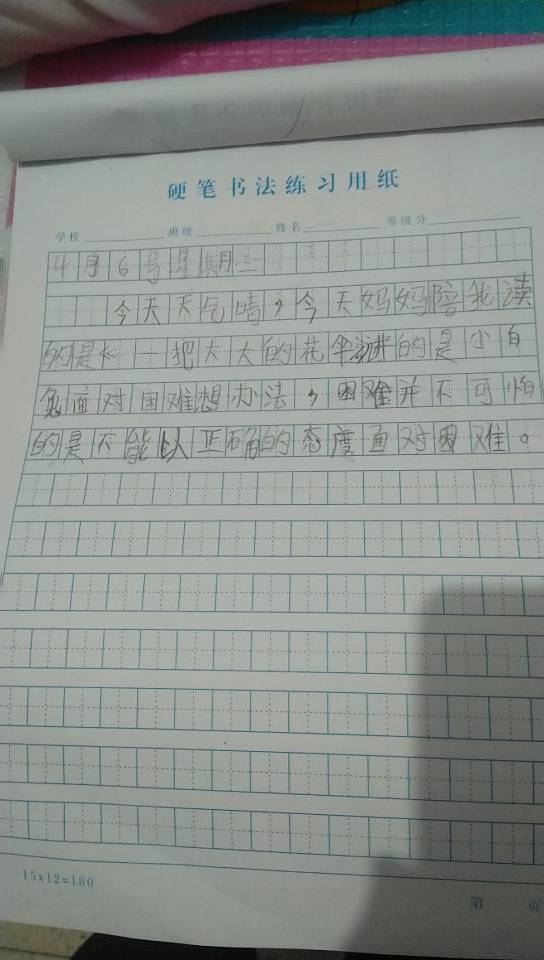 硬笔书法练习用纸
学校 班级 姓名 等级分
4月6号星期三
今天天气晴，今天妈妈陪我读
的是《一把大大的花伞》讲的是小白
兔面对困难想办法，困难并不可怕
的是不能以正确的态度面对困难。
15x12=180
第 页